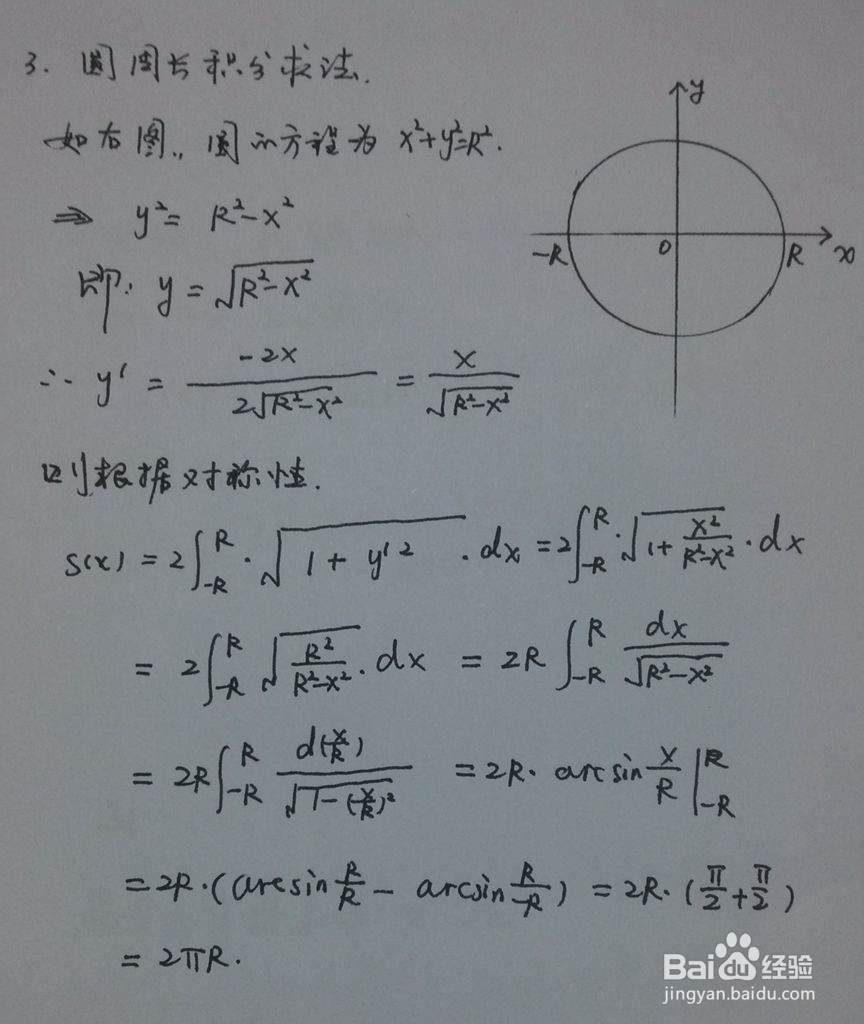 3. 圆周长积分求法.
如右图, 圆的方程为 x²+y²=R².
⇒ y² = R²-x²
即: y = √(R²-x²)
∴ y' = -2x / 2√(R²-x²) = x / √(R²-x²)
则根据对称性.
s(x) = 2∫_{-R}^{R} · √(1 + y'²) · dx = 2∫_{-R}^{R} · √(1 + x²/(R²-x²)) · dx
= 2∫_{-R}^{R} √(R²/(R²-x²)) · dx = 2R ∫_{-R}^{R} dx/√(R²-x²)
= 2R ∫_{-R}^{R} d(x/R)/√(1-(x/R)²) = 2R · arcsin x/R |_{-R}^{R}
= 2R · (arcsin R/R - arcsin R/-R) = 2R · (π/2 + π/2)
= 2πR.
y
-R
O
R
x
Baidu 经验
jingyan.baidu.com